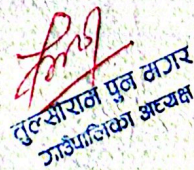 तुल्सीराम पुन मगर
गाउँपालिका अध्यक्ष